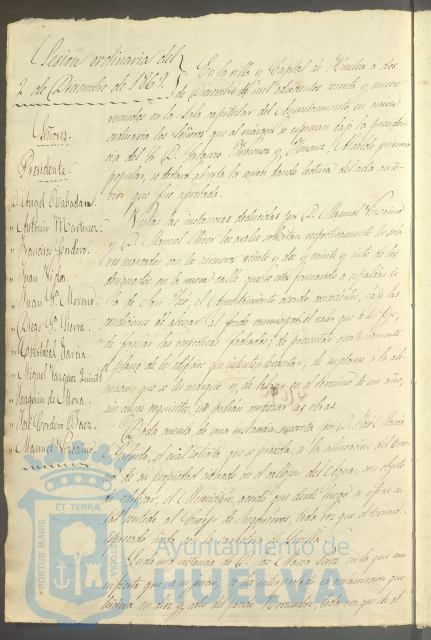 Sesion ordinaria del
2 de Diciembre de 1869.
Señores
Presidente
D. Angel Rabadan.
" Antonio Martinez
" Francisco Cordero.
" Juan
" Juan Gª Moreno.
" Diego Gª Sierra.
" Cristobal Garcia.
" Miguel Vazquez
" Joaquin de Mora.
" José Cordero Baez.
" Manuel
En la villa y Capital de Huelva a dos
de Diciembre de mil ochocientos sesenta y nueve
reunidos en la Sala capitular del Ayuntamiento en sesion
ordinaria los Señores que al margen se espresan bajo la presiden-
cia del Sr. D. Alcalde primero
popular, se declaró abierta la sesion dando lectura del acta ante-
rior que fué aprobada.
Vistas las instancias deducidas por D. Manuel
y D. Manuel los cuales solicitan respectivamente los sola-
res marcados con los numeros veinte y dos y veinte y siete de los
designados en la nueva calle que se está formando a espaldas de
la de San José, el Ayuntamiento acordó concederles, bajo las
condiciones de abonar al fondo municipal el valor que se les fije,
de formar las respectivas fachadas; de presentar previamente
el plano de los edificios que intenten levantar;
que se les marque y de en el termino de un año,
sin cuyos requisitos, no podrán empezar las obras.
Dada cuenta de una instancia suscrita por D. José Maria
el cual solicita que se proceda a la alineacion del terre-
no de su propiedad situado en el callejon del con objeto
de edificar, el Municipio acordó que desde luego se oficie en
tal sentido al Cuerpo de Ingenieros, toda vez que el terreno
espresado linda con la carretera de Sevilla.
instancia de D. José Maria en la que ma-
nifiesta que
hiciera en diez y ocho del pasado Noviembre, toda vez que el
PORTUS MARIS
ET TERRAE
CUSTODIA
Ayuntamiento de
HUELVA